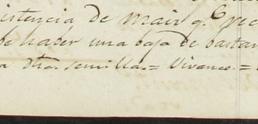 istencia de maiz q.e
hacer una baja de
a otra semilla = Vivanco =